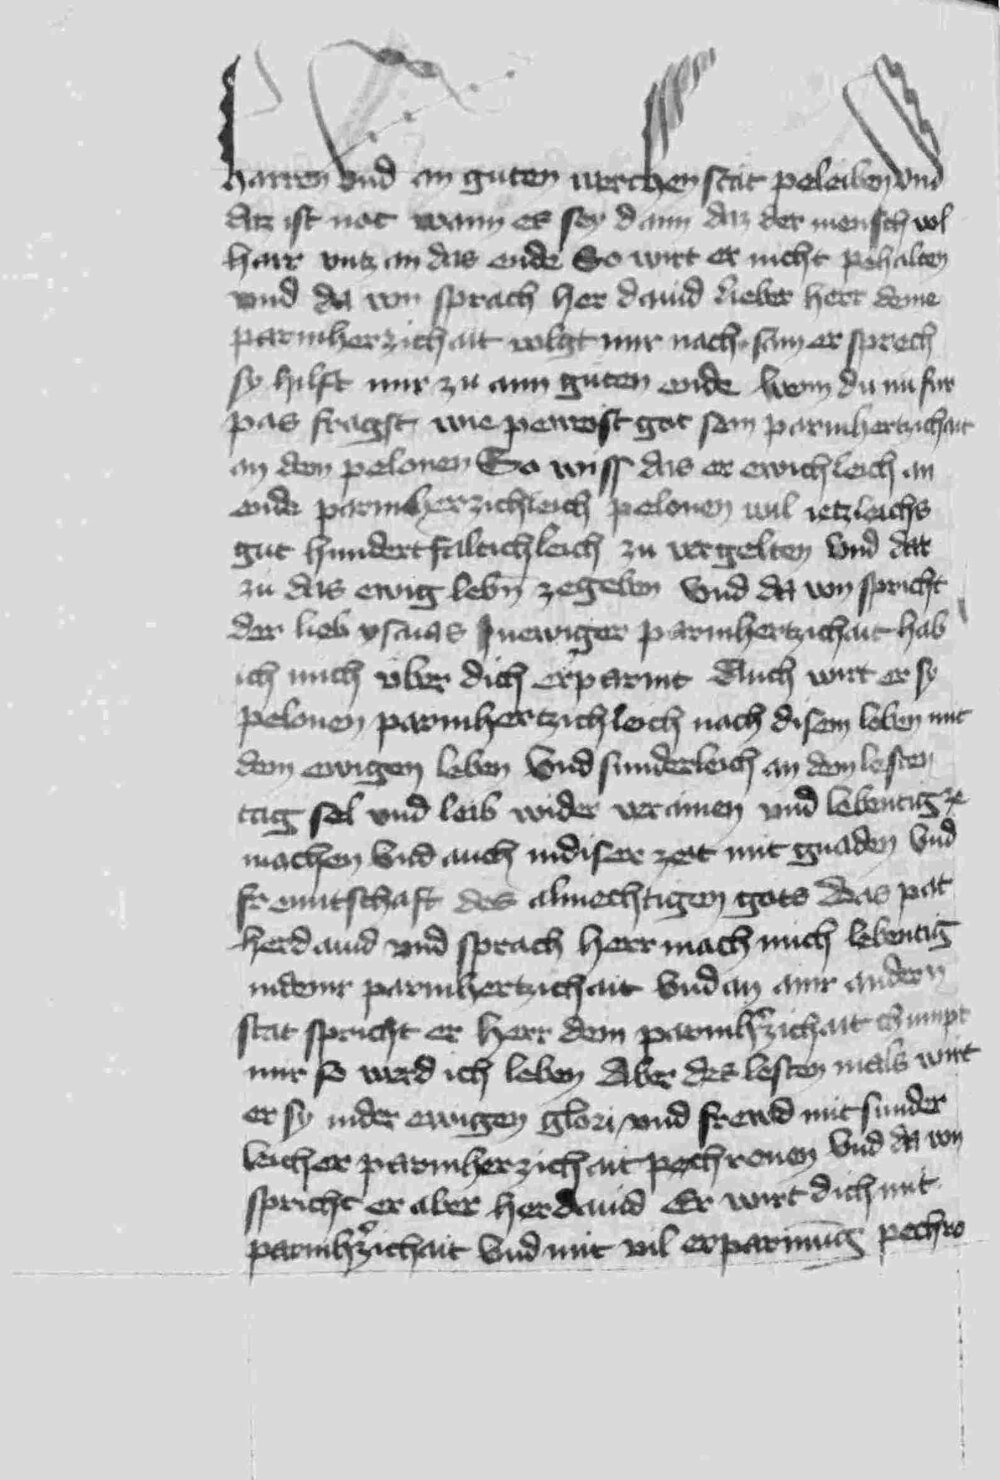 harren vnd an guten werchen stat peleiben vnd
daz ist not wann es sey dann daz der mensch vol
harr vntz an das ende So wirt er nicht pehalten
vnd da von sprach her dauid lieber herr deine
parmherzichait volgt mir nach sam er sprech
sy hilft mir zu aim guten ende wenn du nu fur
pas fragst wie peweist got sein parmhertzichait
an dem pelonen So wiss das er ewichleich an
ende parmherzichleich pelonen wil ietzleichs
gut hundertfaltichleich zu vergelten vnd dar
zu das ewig lebn zegeben vnd da von spricht
der lieb ysaias In ewiger parmhertzichait hab
ich mich vber dich erparmt Auch wirt er sy
pelonen parmhertzichleich nach disem leben mit
dem ewigen leben vnd sunderleich an dem lesten
tag sel vnd leib wider verainen vnd lebentig ze
machen vnd auch in diser zeit mit gnaden vnd
freuntschaft des almechtigen gots Das pat
her dauid vnd sprach herr mach mich lebentig
in deinr parmhertzichait vnd an ainr andern
stat spricht er herr dein parmhzichait chumpt
mir so werd ich leben Aber des lesten mals wirt
er sy in der ewigen glori vnd frewd mit sunder
leicher parmherzichait pechronen vnd da von
spricht er aber her dauid Er wirt dich mit
parmhzichait vnd mit vil erparmung pechro